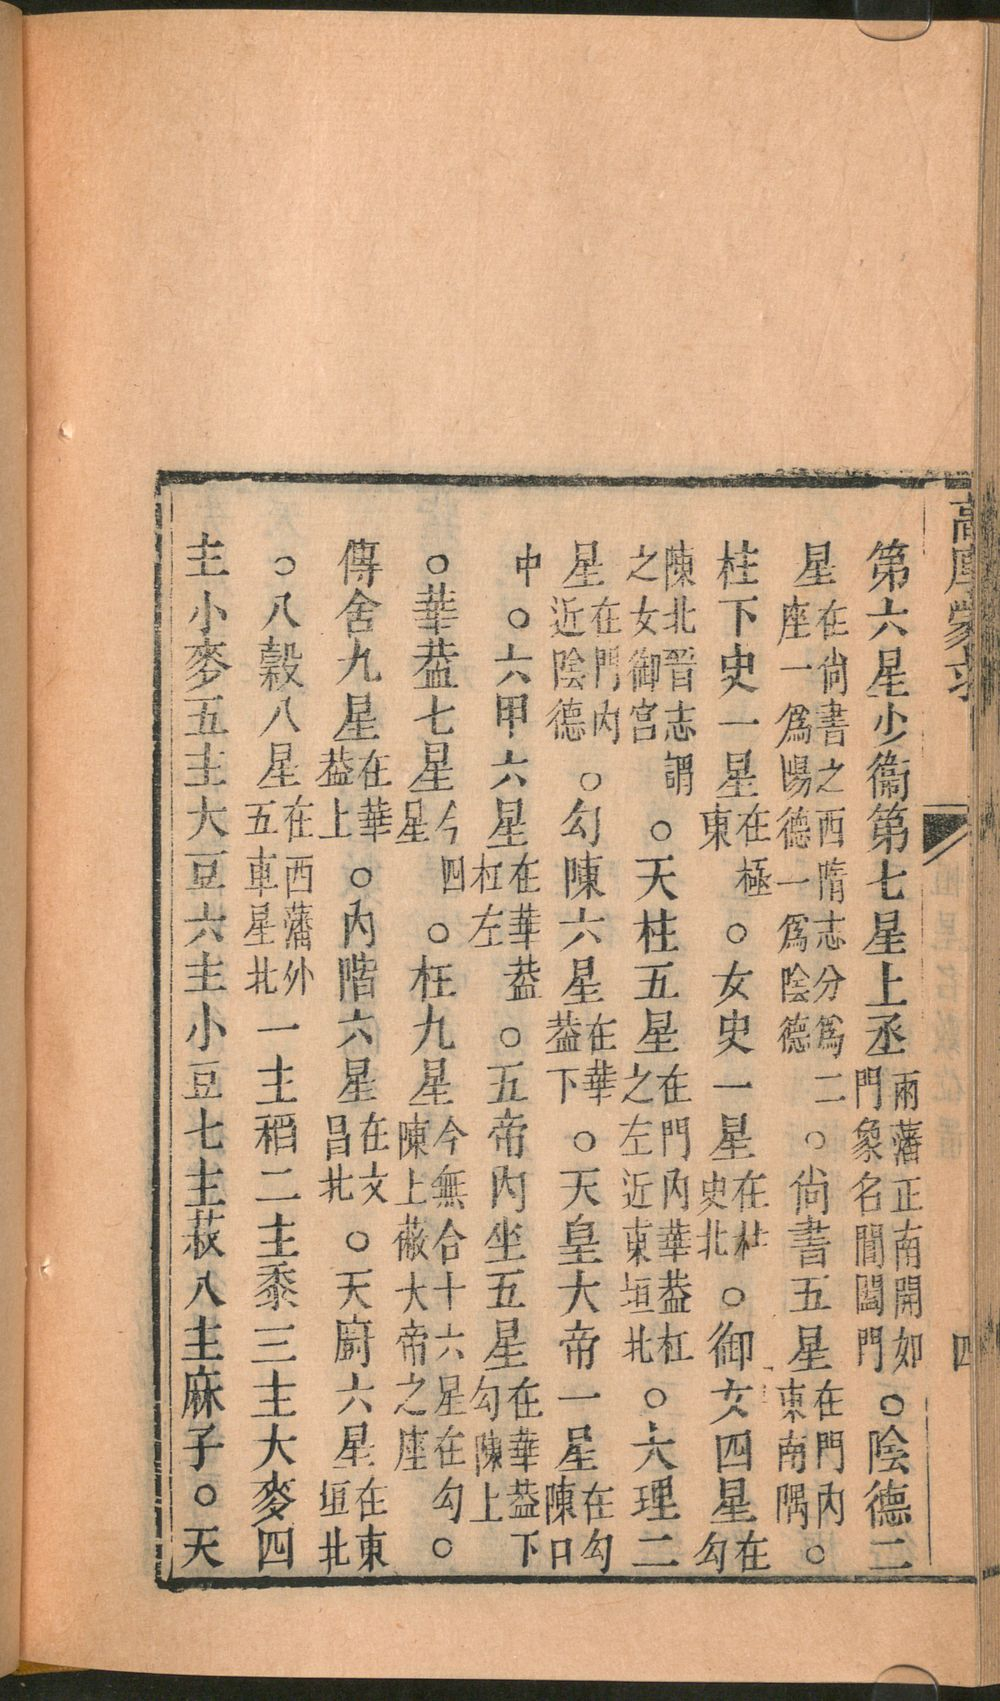 高厚蒙求 四
第六星少衞第七星上丞兩藩正南開如門象名閶闔門○陰德二
星在尚書之西隋志分爲二座一爲陽德一爲陰德○尚書五星在門內東南隅○
柱下史一星在極東○女史一星在柱史北○御女四星在勾
陳北晉志謂之女御宮○天柱五星在門內華葢杠之左近東垣北○大理二
星在門內近陰德○勾陳六星在華葢下○天皇大帝一星在勾陳口
中○六甲六星在華葢杠左○五帝內坐五星在華葢下勾陳上
○華葢七星今四星○杠九星今無合十六星在勾陳上蔽大帝之座○
傳舍九星在華葢上○內階六星在文昌北○天廚六星在東垣北
○八穀八星在西藩外五車星北一主稻二主黍三主大麥四
主小麥五主大豆六主小豆七主菽八主麻子○天